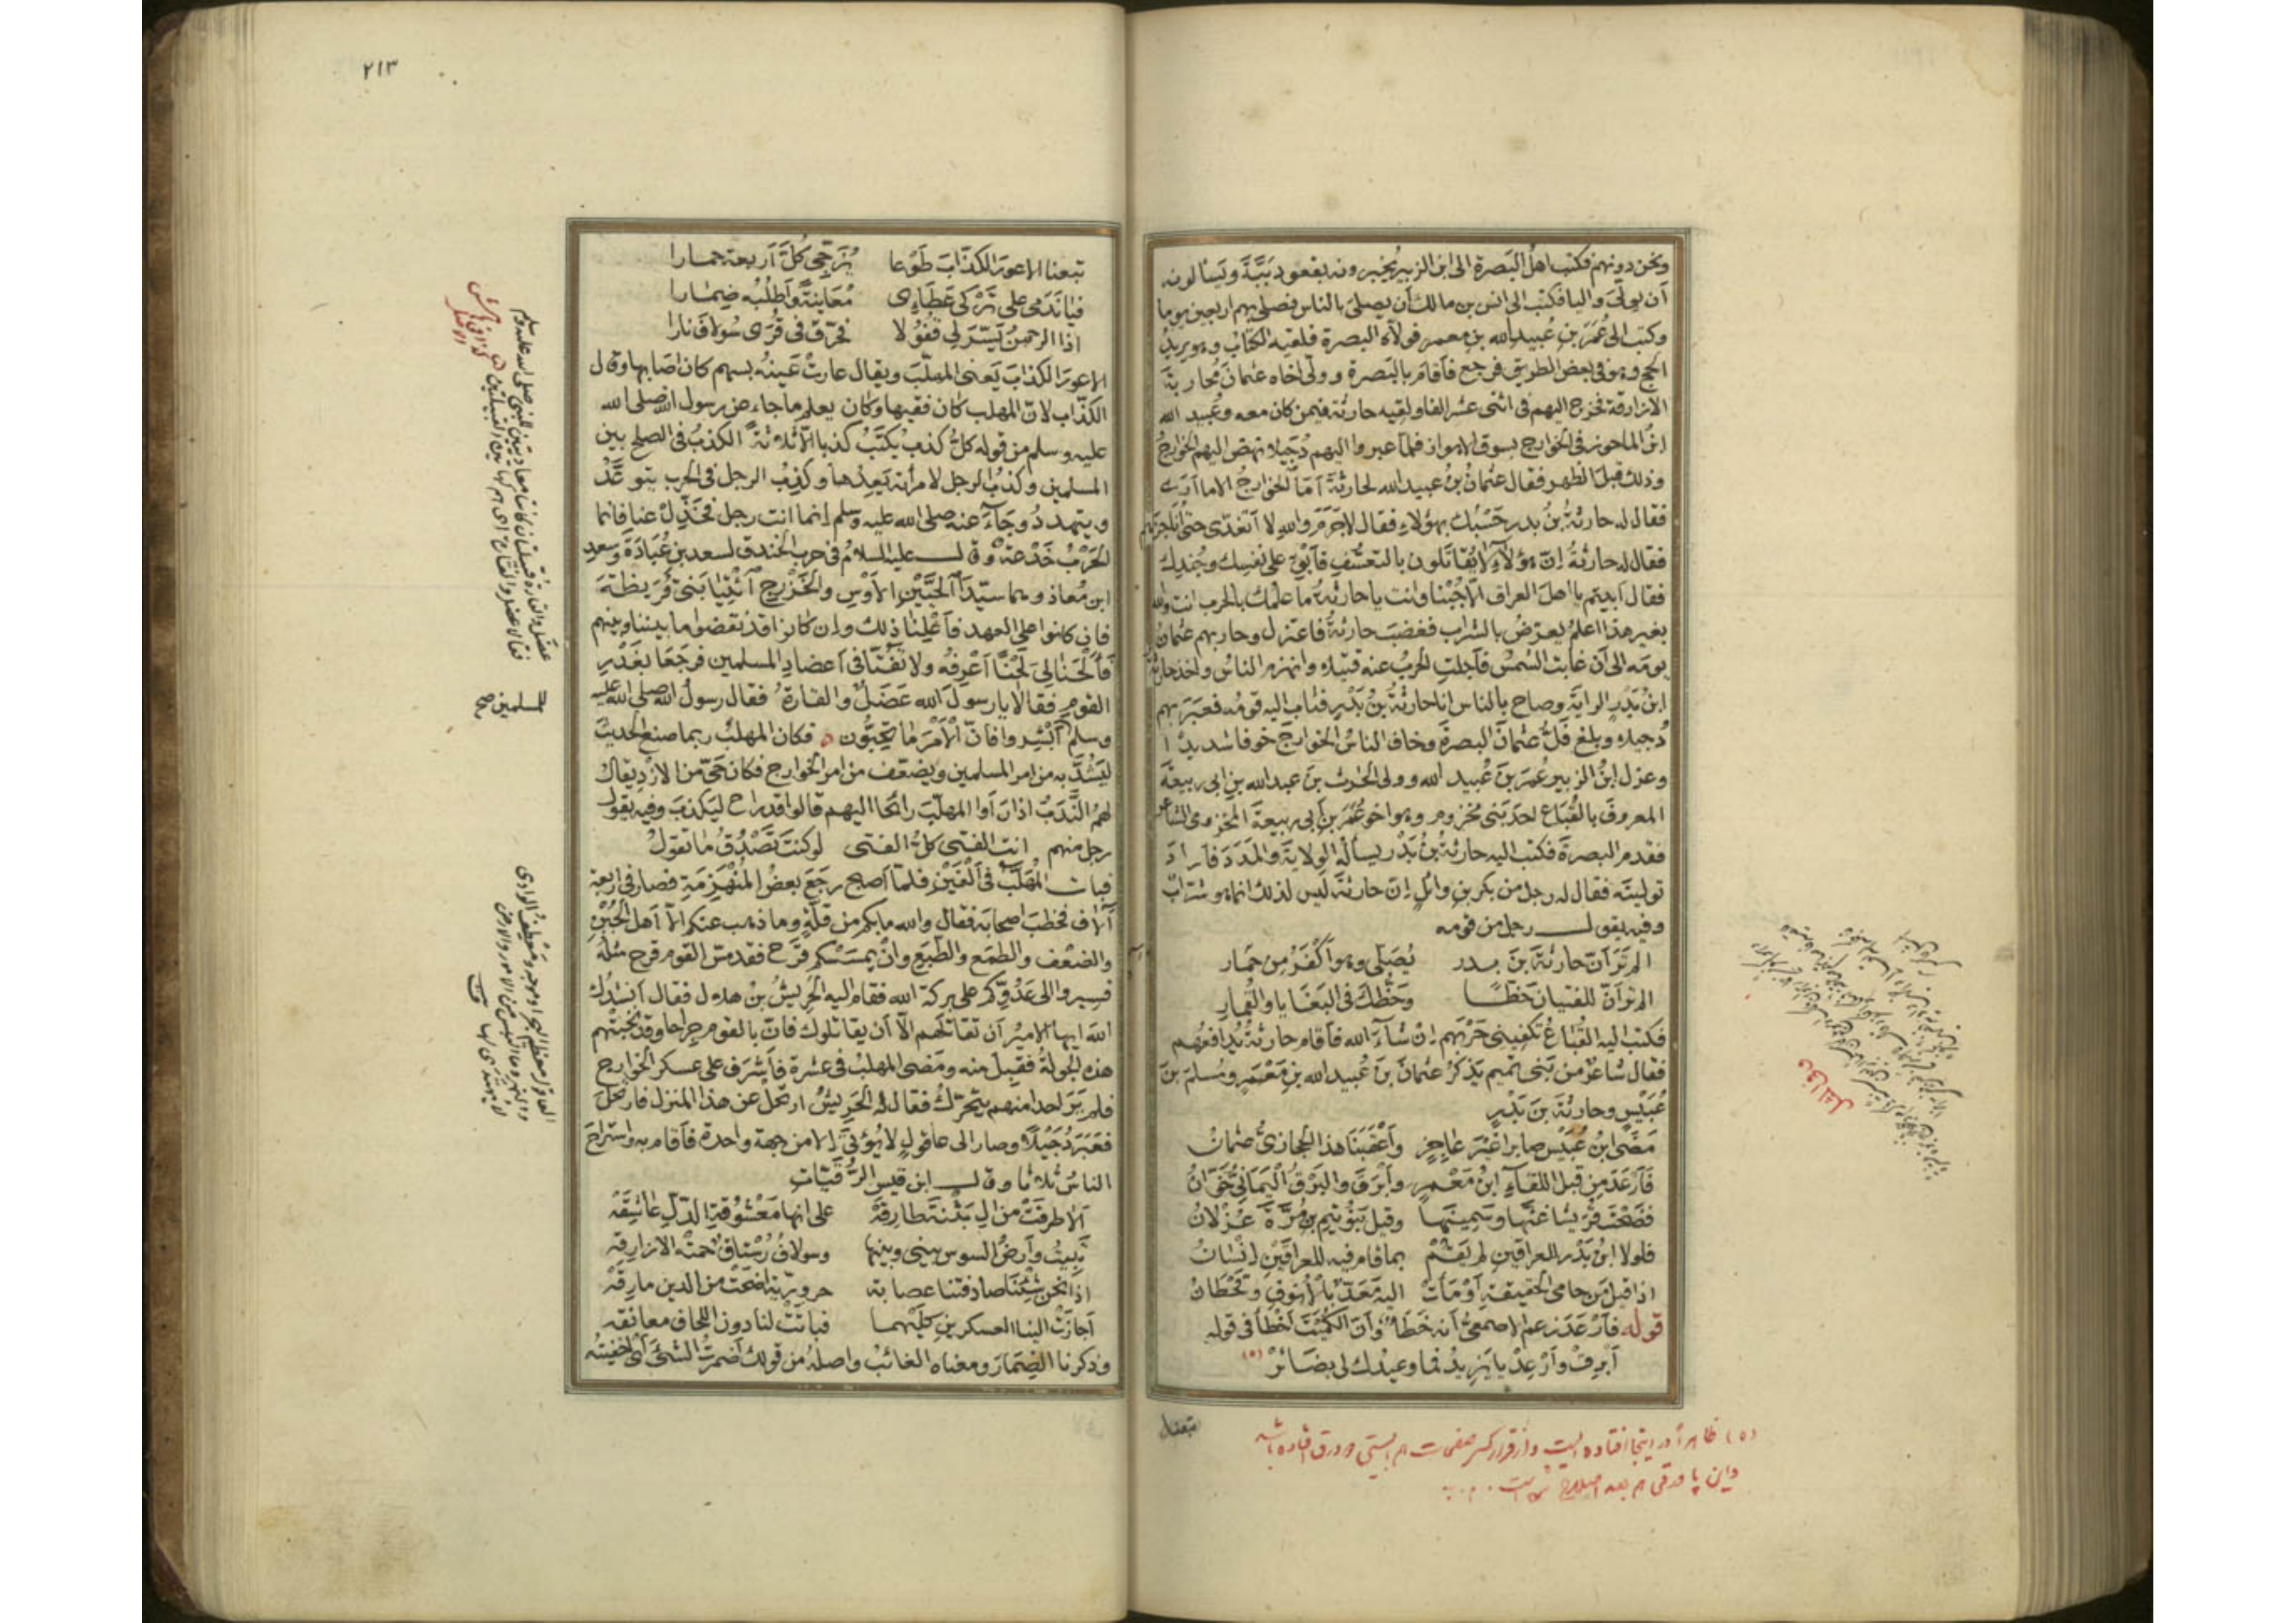 ونحن دونهم فكتب اهل البصرة الى ابن الزبير يخبرونه بقعود بَبَّةَ ويسألونه
أن يولّى واليا فكتب الى انس بن مالك أن يصلى بالناس فصلى بهم اربعين يوما
وكتب الى عُمَرَ بنِ عُبيد الله بنِ معمر فولاه البصرة فلقيه الكتاب وهو يريد
الحج وهو فى بعض الطريق فرجع فأقام بالبصرة وولّى اخاه عثمانَ مُحاربةَ
الازارقة فخرج اليهم فى اثنى عشر الفا ولقيه حارثة فيمن كان معه وعُبيد الله
ابنُ الماحوز فى الخوارج بسوق الاهواز فلمّا عبروا اليهم دُجَيلا نهض اليهم الخوارجُ
وذلك قبلَ الظهر فقال عثمانُ بنُ عبيد الله لحارثةَ أمَا الخوارجُ الا ما أرى
فقال له حارثةُ بنُ بدر حَسْبُك بهؤلاء فقال لاجَرَمَ والله لا أتغدّى حتى أناجزهم
فقال له حارثةُ إنّ هؤلاء لا يُقاتَلون بالتعسّفِ فأبْقِ على نفسِك وجُندِك
فقال أبيتم يا اهلَ العراق الّا جُبْنا وانت يا حارثةُ ما علمُك بالحرب انت والله
بغير هذا اعلمُ يعرّضُ بالشراب فغضبَ حارثةُ فاعتزل وحاربهم عثمانُ
يومَه الى أن غابت الشمسُ فأجلت الحربُ عنه قتيلا وانهزم الناسُ واخذ حارثةُ
ابنُ بَدْرٍ الرايةَ وصاح بالناس انا حارثةُ بنُ بَدْرٍ فثاب اليه قومُه فعبَرَ بهم
دُجيلا وبلغ فَلُّ عثمانَ البصرةَ وخاف الناسُ الخوارجَ خوفا شديدًا
وعزل ابنُ الزبير عُمَرَ بنَ عُبيد الله وولى الحرث بنَ عبد الله بنِ ابى ربيعةَ
المعروفَ بالقُبَاع احدَ بَنى مخزوم وهو اخو عُمَرَ بنِ أبى ربيعةَ المخزومى الشاعر
فقدم البصرةَ فكتب اليه حارثةُ بنُ بَدْر يسألُه الولايةَ والمَدَدَ فأرادَ
توليتَه فقال له رجل من بكر بن وائل إنّ حارثةَ ليس لذلك انما هو شرّابٌ
وفيه يقول رجل من قومه
الم تَرَ أنّ حارثةَ بنَ بدر يُصَلّى وهو أكْفَرُ مِن حِمار
الم تر أنّ للفتيان حَظًّا وحَظُّك فى البَغَايا والقِمارِ
فكتب اليه القُبَاعُ تكفينى حَرْبَهم إن شآء الله فأقام حارثةُ يُدافعُهم
فقال شاعرٌ من بَنى تميم يَذكُرُ عثمانَ بنَ عُبيد الله بنِ مَعْمَر ومُسلمَ بنَ
عُبَيْسٍ وحارثةَ بنَ بَدْرٍ
مَضَى ابنُ عُبَيْس صابرا غيْرَ عاجزٍ وأعْقَبَنا هذا الحجازىُّ عثمانُ
فأرْعَدَ مِن قبل اللقآءِ ابنُ مَعْمَرٍ وأبْرَقَ والبَرْقُ اليمانىُّ خَوّانُ
فضَحْتَ قُرَيْشا غثّها وسمينَها وقيل بَنُو تَيْمِ بنِ مُرَّةَ عُزْلانُ
فلولا ابنُ بَدْرٍ للعراقين لم يَقُمْ بما قام فيه للعراقَيْنِ إنْسَانُ
اذا قيل مَن حامى الحقيقةِ أوْمَأتْ اليه مَعَدٌّ بالأنوفِ وقَحْطَانُ
قوله فأرْعَدَ زعم الاصمعىُّ أنه خَطَأ وأن الكُمَيْتَ أخْطأ فى قوله
أبْرِقْ وأرْعِدْ يا يَزيدُ فما وعيدُك لى بضائرْ (٥)
تبعنا
(٥) ظاهراً در اينجا افتاده است
٢١٣
تبعنا الاعورَ الكذّابَ طَوْعا يُزَجّى كلَّ أربعة حمارا
فيا نَدَمى على تَرْكى عَطَاءى مُعَاينةً وأطلُبُه ضِمَارا
اذا الرحمنُ يَسّرَ لى قُفُولا فحَرّق فى قُرَى سُولاف نارا
الاعورَ الكذابَ يَعنى المهلّبَ ويقال عارتْ عَينُه بسهم كان اصابها وقال
الكذّاب لانّ المهلب كان فقيها وكان يعلم ما جاء عن رسول الله صلى الله
عليه وسلم من قوله كلُّ كذب يُكتَبُ كذبا الّا ثلاثةً الكذبُ فى الصلح بين
المسلمين وكذبُ الرجل لامرأته يَعِدُها وكذبُ الرجل فى الحرب يتوعّدُ
ويتهددُ وجآء عنه صلى الله عليه وسلم إنما انت رجل فخَذِّلْ عنا فانما
الحَرْبُ خَدْعةٌ وقال عليه السلامُ فى حرب الخندق لسعد بن عُبَادَةَ وسعدِ
ابن مُعاذ وهما سيّدَا الحَيَّيْنِ الأوْسِ والخَزْرجِ ائْتِيَا بَنى قُرَيظةَ
فان كانوا على العهد فأعْلِنا ذلك وإن كانوا قد نقضوا ما بيننا وبينهم
فألْحَنا لى لَحْنًا أعْرِفُه ولا تَفُتّا فى أعضادِ المسلمين فرجَعَا بغَدْرِ
القوم فقالا يا رسولَ الله عَضَلٌ والقارةُ فقال رسولُ الله صلى الله عليه
وسلم أبْشِروا فانّ الأمْرَ ما تُحِبُّون فكان المهلبُ ربما صنع الحديثَ
ليَشُدَّ به من امر المسلمين ويضعّفَ من امر الخوارج فكان حَىٌّ من الازْدِ يقال
لهم النَّدَبُ اذا رَأوا المهلّبَ رائحا اليهم قالوا قد راح ليَكذبَ وفيه يقول
رجل منهم انت الفتى كلُّ الفتى لو كنتَ تَصْدُقُ ما تقولُ
فبات المُهَلَّبُ فى ألْفَيْنِ فلمّا أصبح رجَعَ بعضُ المُنْهَزِمَةِ فصار فى اربعة
آلاف فخطبَ اصحابَه فقال والله ما بكم من قلّةٍ وما ذهب عنكم الّا أهلُ الجُبْنِ
والضعْف والطمَع والطَّبَع وإنْ يمْسَسْكم قَرْح فقد مسّ القومَ قرح مثلُه
فسيروا الى عَدُوِّكم على بركة الله فقام اليه الحَرِيشُ بنُ هلال فقال أنشُدُك
اللهَ ايها الاميرُ أن تقاتلَهم الّا أن يقاتلوك فانّ بالقوم جِراحا وقد أثخنَتْهم
هذه الجولةُ فقبِلَ منه ومَضى المهلبُ فى عشَرة فأشْرَف على عسكر الخوارج
فلم يَرَ احدا منهم يتحرّكُ فقال له الحَرِيشُ ارتحِلْ عن هذا المنزل فارتحَلَ
فعَبَرَ دُجَيْلًا وصار الى عاقولٍ لا يُؤتَى إلا من جهة واحدة فأقام به واستراحَ
الناسُ ثلاثا وقال ابن قيس الرُّقَيّاتِ
ألا طرقَتْ من آلِ بَثْنَةَ طارقَهْ على انها مَعْشُوقةُ الدّلِّ عاشِقَهْ
تَبِيتُ وأرضُ السوس بينى وبينها وسولافُ رُسْتاقٌ حمَتْه الازارقهْ
اذا نحن شِئْنا صادفتنا عصابة حروريّةٌ اضحَتْ من الدين مارقهْ
أجازَتْ الينا العسكرين كِلَيْهما فباتَتْ لنا دون اللحاف معانقه
وذكرنا الضِمَارَ ومعناه الغائبُ واصلُه من قولك أضمرتُ الشئَ أى اخفيتُه
للمسلمين صح